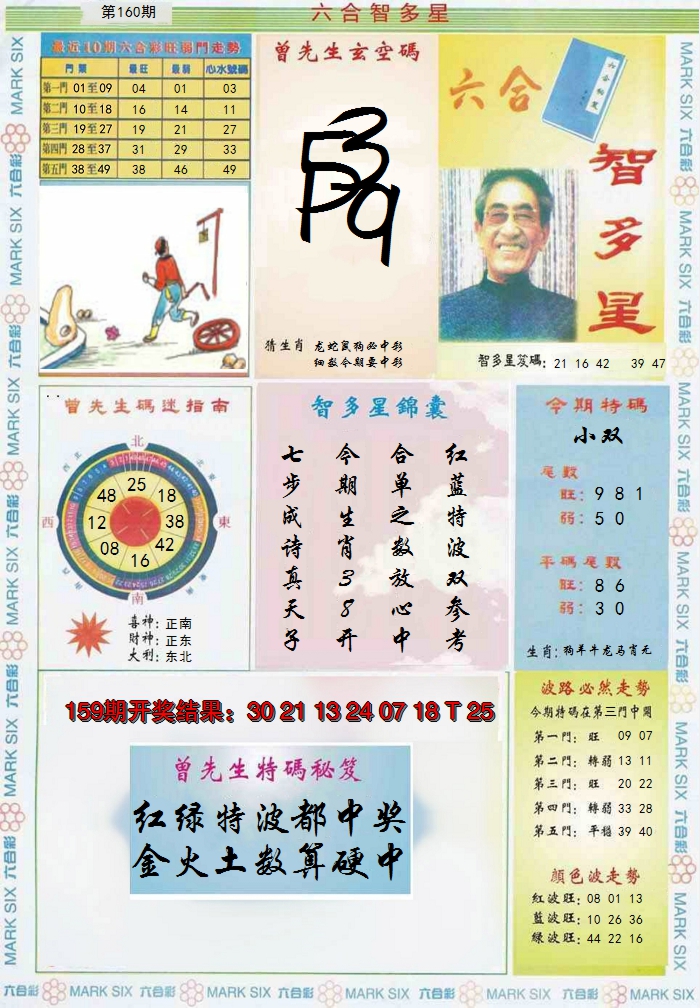 第160期
六合智多星
最近10期六合彩旺弱門走勢
門類 最旺 最弱 心水號碼
第一門 01至09 04 01 03
第二門 10至18 16 14 11
第三門 19至27 19 21 27
第四門 28至37 31 29 33
第五門 38至49 38 46 49
曾先生玄空碼
猜生肖 龙蛇鼠狗必中彩
细数今期要中彩
六合
智多星
智多星笈碼: 21 16 42 39 47
曾先生碼迷指南
北
西
東
南
25
48 18
12 38
08 42
16
喜神: 正南
財神: 正东
大利: 东北
智多星錦囊
红蓝特波双参考
合单之数放心中
今期生肖38开
七步成诗真天子
今期特碼
小双
尾數
旺: 9 8 1
弱: 5 0
平碼尾數
旺: 8 6
弱: 3 0
生肖: 狗羊牛龙马肖无
159期开奖结果: 30 21 13 24 07 18 T 25
曾先生特碼秘笈
红绿特波都中奖
金火土数算硬中
波路必然走勢
今期特碼在第三門中開
第一門: 旺 09 07
第二門: 轉弱 13 11
第三門: 旺 20 22
第四門: 轉弱 33 28
第五門: 平穩 39 40
顏色波走勢
紅波旺: 08 01 13
藍波旺: 10 26 36
綠波旺: 44 22 16
六合彩 MARK SIX 六合彩 MARK SIX 六合彩 MARK SIX 六合彩 MARK SIX 六合彩 MARK SIX